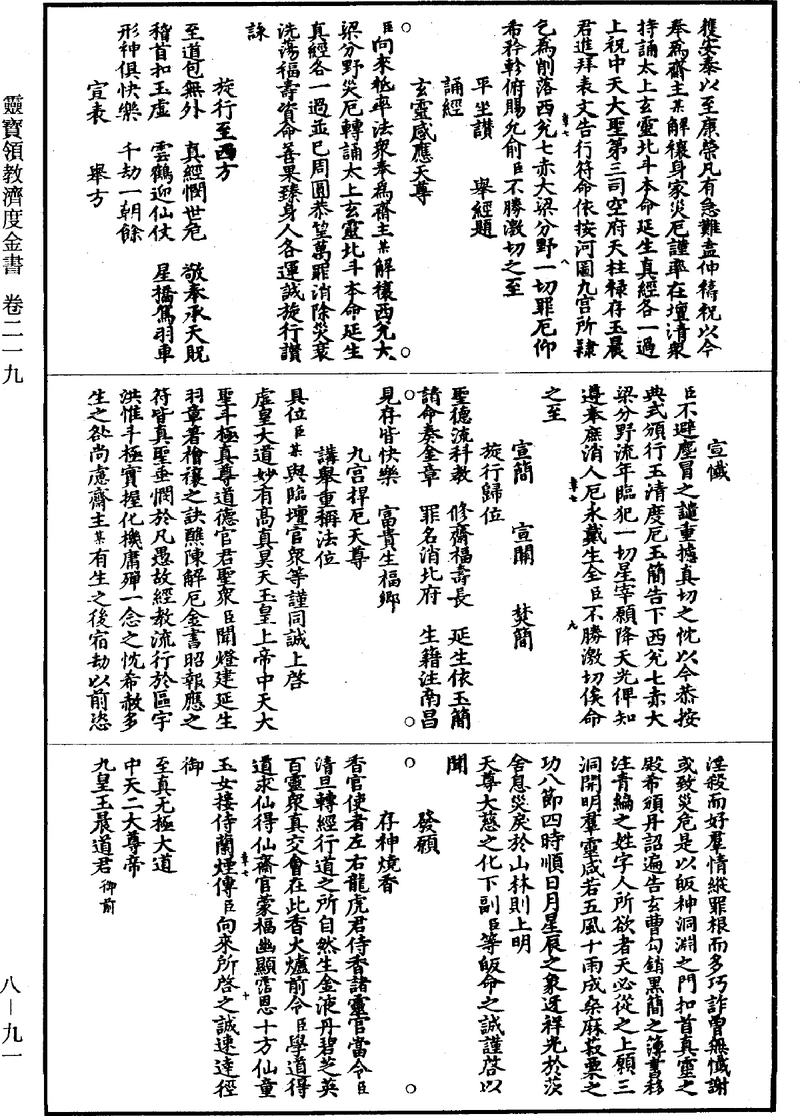 靈寶領教濟度金書 卷二一九
八－九一
獲安泰以至康榮凡有急難盍伸禱祝以今
奉為齋主某解禳身家災厄謹率在壇清衆
持誦太上玄靈北斗本命延生真經各一過
上祝中天大聖第三司空府天柱祿存玉晨
君進拜表文告行符命依按河圖九宮所隷
乞為削落西兊七赤大梁分野一切罪厄仰
希矜軫俯賜允俞臣不勝激切之至
平坐讃 舉經題
誦經
玄靈感應天尊
臣向來祗率法衆奉為齋主某解禳西兊大
梁分野災厄轉誦太上玄靈北斗本命延生
真經各一過並已周圓恭望萬罪消除災衰
洗蕩福壽資命善果臻身人各運誠旋行讃
詠
旋行至西方
至道包無外 真經憫世危 敬奉承天貺
稽首扣玉虛 雲鶴迎仙仗 星橋駕羽車
形神俱快樂 千劫一朝餘
宣表 舉方
宣懺
臣不避塵冒之譴重攄真切之忱以今恭按
典式頒行玉清度厄玉簡告下西兊七赤大
梁分野流年臨犯一切星宰願降天光俾知
遵奉庶消人厄永戴生全臣不勝激切俟命
之至
宣簡 宣關 焚簡
旋行歸位
聖德流科教 修齋福壽長 延生依玉簡
請命奏金章 罪名消北府 生籍注南昌
見存皆快樂 富貴生福鄉
九宮捍厄天尊
講舉重稱法位
具位臣某與臨壇官衆等謹同誠上啓
虛皇大道妙有高真昊天玉皇上帝中天大
聖斗極真尊道德官君聖衆臣聞燈建延生
羽童著禬禳之訣醮陳解厄金書昭報應之
符皆真聖垂憫於凡愚故經教流行於區宇
洪惟斗極實握化機庸殫一念之忱希赦多
生之咎尚慮齋主某有生之後宿劫以前恣
淫殺而好羣情縱罪根而多巧詐曾無懺謝
或致災危是以皈神洞淵之門扣首真靈之
殿希頒丹詔遍告玄曹勾銷黑簡之簿書移
注青編之姓字人所欲者天必從之上願三
洞開明羣靈咸若五風十雨成桑麻菽粟之
功八節四時順日月星辰之象迓祥光於茨
舍息災戾於山林則上明
天尊大慈之化下副臣等皈命之誠謹啓以
聞
發願
存神燒香
香官使者左右龍虎君侍香諸靈官當令臣
清旦轉經行道之所自然生金液丹碧芝英
百靈衆真交會在此香火爐前令臣學道得
道求仙得仙齋官蒙福幽顯霑恩十方仙童
玉女接侍蘭煙傳臣向來所啓之誠速達徑
御
至真无極大道
中天二大尊帝
九皇玉晨道君御前